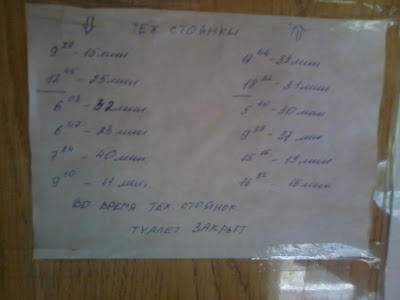 ТЕХ СТОЯНКИ
9²⁸ - 15 мин
12⁴⁵ - 25 мин
6⁰³ - 32 мин
6⁴⁷ - 23 мин
7²⁴ - 40 мин
9¹⁰ - 11 мин.
- 31 мин
5⁴⁰ - 30 мин
- 37 мин
15¹⁵ - 19 мин
- 15 мин
ВО ВРЕМЯ ТЕХ. СТОЯНОК
ТУАЛЕТ ЗАКРЫТ